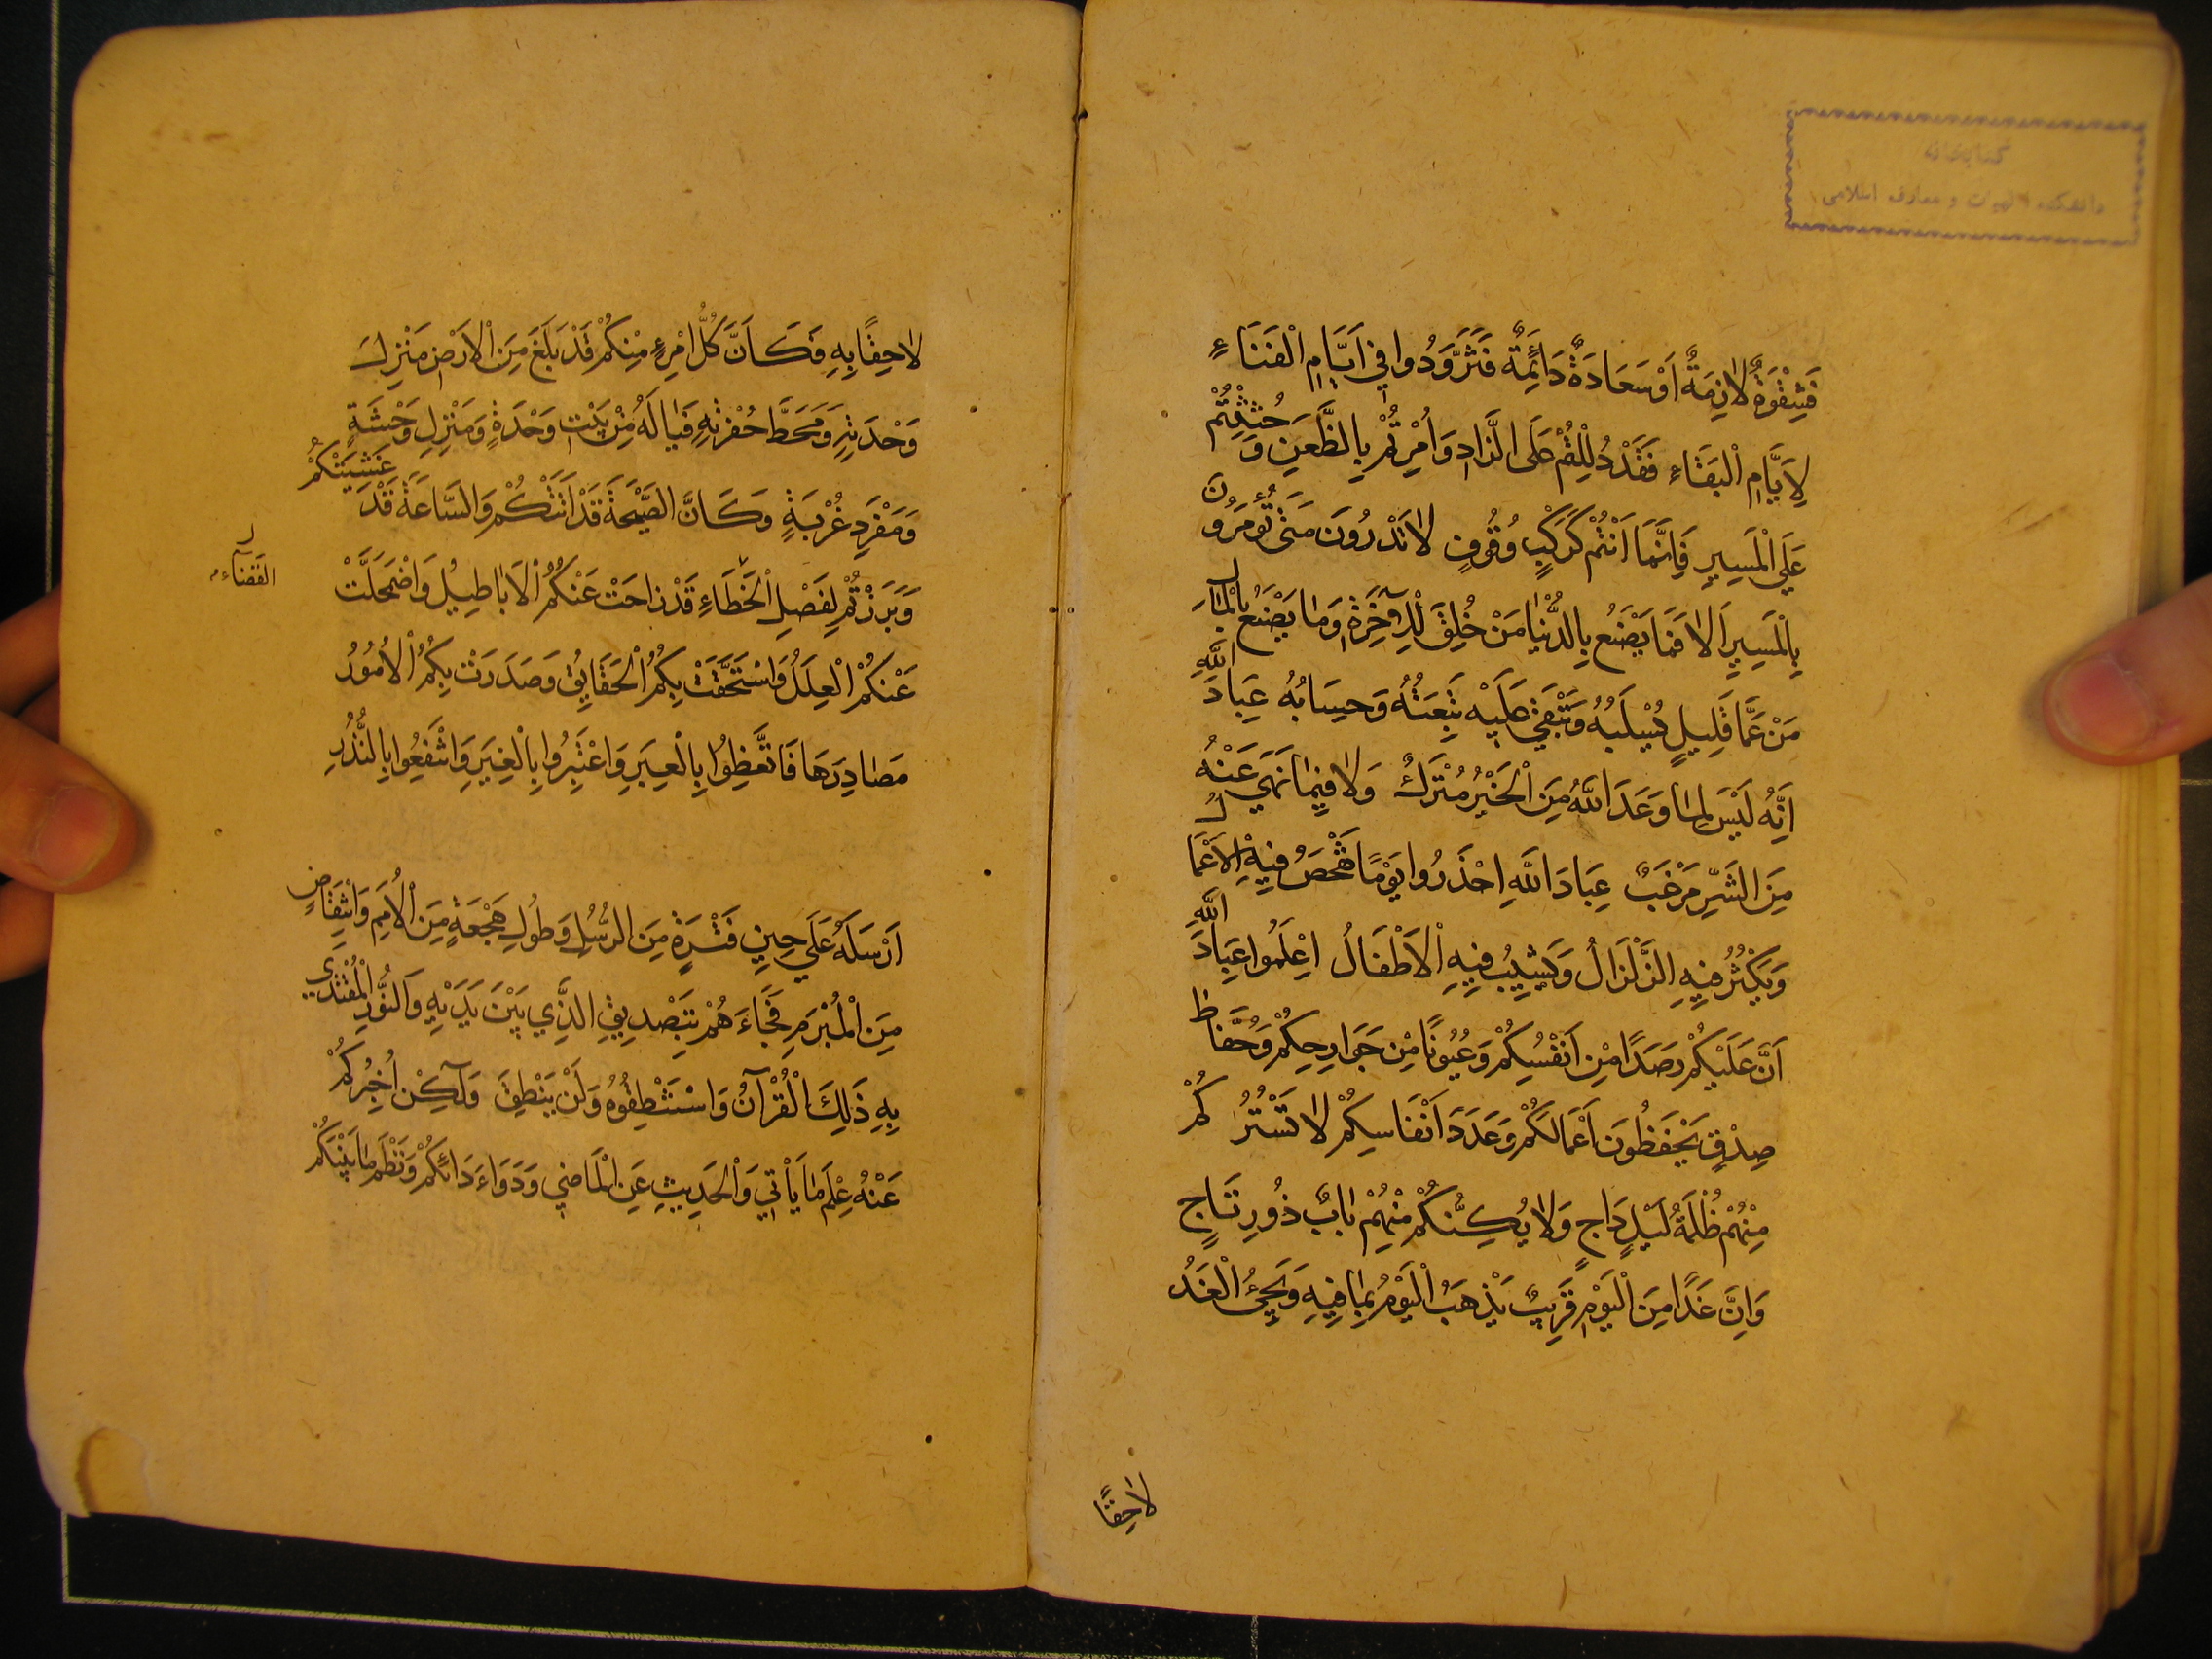 كتابخانه
دانشكده الهيات و معارف اسلامى
فَشِقْوَةٌ لَازِمَةٌ اَوْ سَعَادَةٌ دَائِمَةٌ فَتَزَوَّدُوا فِي اَيَّامِ الْفَنَاءِ
لِاَيَّامِ الْبَقَاءِ فَقَدْ دُلِلْتُمْ عَلَى الزَّادِ وَاُمِرْتُمْ بِالظَّعَنِ وَ حُثِثْتُمْ
عَلَي الْمَسِيرِ فَاِنَّمَا اَنْتُمْ كَرَكْبٍ وُقُوفٍ لَا تَدْرُونَ مَتٰى تُؤْمَرُونَ
بِالْمَسِيرِ اَلَا فَمَا يَصْنَعُ بِالدُّنْيَا مَنْ خُلِقَ لِلْآخِرَةِ وَمَا يَصْنَعُ بِالْمَالِ
مَنْ عَمَّا قَلِيلٍ يُسْلَبُهُ وَتَبْقٰى عَلَيْهِ تَبِعَتُهُ وَحِسَابُهُ عِبَادَ اللّٰهِ
اَنَّهُ لَيْسَ لِمَا وَعَدَ اللّٰهُ مِنَ الْخَيْرِ مُتْرَكٌ وَلَا فِيمَا نَهَي عَنْهُ
مِنَ الشَّرِّ مَرْغَبٌ عِبَادَ اللّٰهِ اِحْذَرُوا يَوْمًا تُفْحَصُ فِيهِ الْاَعْمَالُ
وَيَكْثُرُ فِيهِ الزَّلْزَالُ وَيَشِيبُ فِيهِ الْاَطْفَالُ اِعْلَمُوا عِبَادَ اللّٰهِ
اَنَّ عَلَيْكُمْ رَصَدًا مِنْ اَنْفُسِكُمْ وَعُيُونًا مِنْ جَوَارِحِكُمْ وَحُفَّاظَ
صِدْقٍ يَحْفَظُونَ اَعْمَالَكُمْ وَعَدَدَ اَنْفَاسِكُمْ لَا تَسْتُرُكُمْ
مِنْهُمْ ظُلْمَةُ لَيْلٍ دَاجٍ وَلَا يُكِنُّكُمْ مِنْهُمْ بَابٌ ذُو رِتَاجٍ
وَاِنَّ غَدًا مِنَ الْيَوْمِ قَرِيبٌ يَذْهَبُ الْيَوْمُ بِمَا فِيهِ وَيَجِيُ الْغَدُ
لاحِقًا
لَاحِقًا بِهِ فَكَاَنَّ كُلَّ امْرِءٍ مِنْكُمْ قَدْ بَلَغَ مِنَ الْاَرْضِ مَنْزِلَ
وَحْدَتِهِ وَمَحَطَّ حُفْرَتِهِ فَيَا لَهُ مِنْ بَيْتِ وَحْدَةٍ وَمَنْزِلِ وَحْشَةٍ
وَمَفْرَدِ غُرْبَةٍ وَكَاَنَّ الصَّيْحَةَ قَدْ اَتَتْكُمْ وَالسَّاعَةَ قَدْ غَشِيَتْكُمْ
وَبَرَزْتُمْ لِفَصْلِ الْخَطَاءِ قَدْ زَاحَتْ عَنْكُمُ الْاَبَاطِيلُ وَاضْمَحَلَّتْ
القَضَاءِ
عَنْكُمُ الْعِلَلُ وَاسْتَحَقَّتْ بِكُمُ الْحَقَايِقُ وَصَدَرَتْ بِكُمُ الْاُمُورُ
مَصَادِرَهَا فَاتَّعِظُوا بِالْعِبَرِ وَاعْتَبِرُوا بِالْغِيَرِ وَانْتَفِعُوا بِالنُّذُرِ
اَرْسَلَهُ عَلَي حِينِ فَتْرَةٍ مِنَ الرُّسُلِ وَطُولِ هَجْعَةٍ مِنَ الْاُمَمِ وَانْتِقَاضٍ
مِنَ الْمُبْرَمِ فَجَاءَهُمْ بِتَصْدِيقِ الَّذِي بَيْنَ يَدَيْهِ وَالنُّورِ الْمُقْتَدٰي
بِهِ ذَلِكَ الْقُرْآنُ وَاسْتَنْطِقُوهُ وَلَنْ يَنْطِقَ وَلٰكِنْ اُخْبِرُكُمْ
عَنْهُ عِلْمَ مَا يَاْتِي وَالْحَدِيثِ عَنِ الْمَاضِي وَدَوَاءَ دَائِكُمْ وَنَظْمَ مَا بَيْنَكُمْ